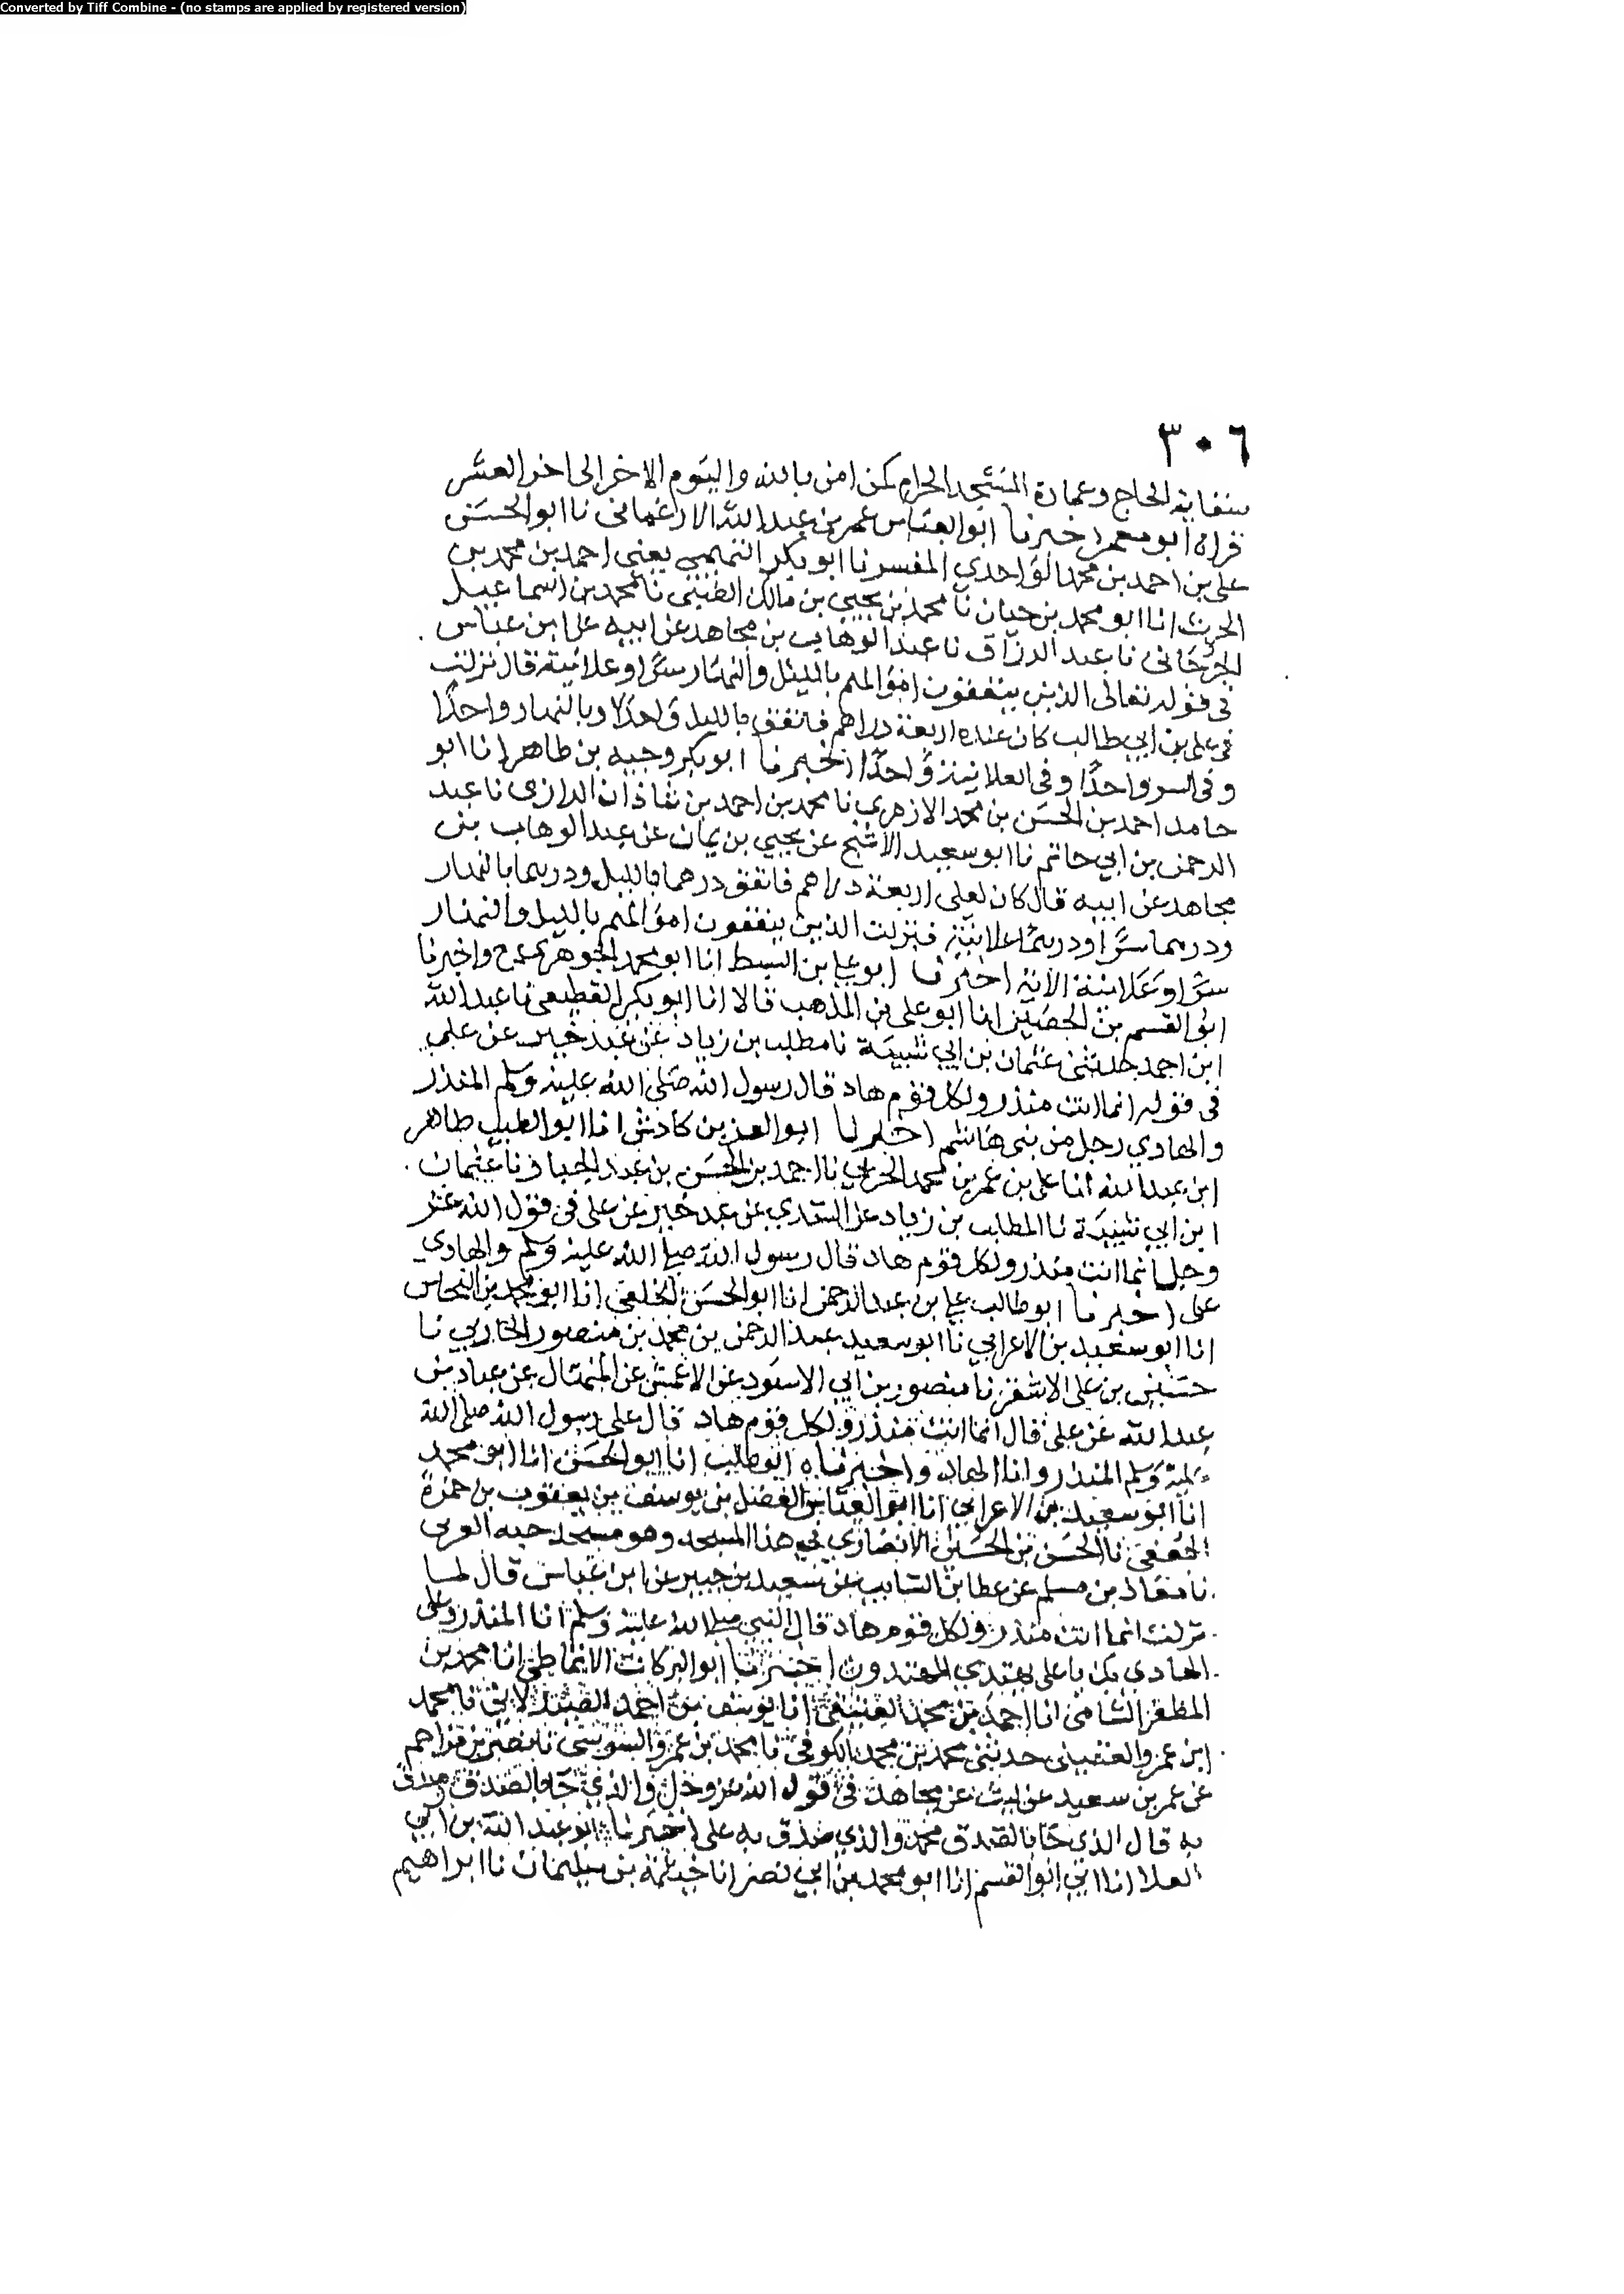 Converted by Tiff Combine - (no stamps are applied by registered version)
٣٠٦
سقاية الحاج وعمارة المسجد الحرام كمن امن بالله واليوم الاخر الى اخر العشر
قراه ابو معمر اخبرنا ابو العباس عمر بن عبد الله الارغياني نا ابو الحسن
علي بن احمد بن محمد الواحدي المفسر نا ابو بكر التميمي يعني احمد بن محمد بن
الحرث انا ابو محمد بن حيان نا محمد بن يحيى بن مالك الضبي نا محمد بن اسماعيل
الجرجاني نا عبد الرزاق نا عبد الوهاب بن مجاهد عن ابيه عن ابن عباس
في قوله تعالى الذين ينفقون اموالهم بالليل والنهار سرا وعلانية قال نزلت
في علي بن ابي طالب كان عنده اربعة دراهم فانفق بالليل واحدا وبالنهار واحدا
وفي السر واحدا وفي العلانية واحدا اخبرنا ابو بكر وجيه بن طاهر انا ابو
حامد احمد بن الحسن بن محمد الازهري نا محمد بن احمد بن شاذان الرازي نا عبد
الرحمن بن ابي حاتم نا ابو سعيد الاشج عن يحيى بن يمان عن عبد الوهاب بن
مجاهد عن ابيه قال كان لعلي اربعة دراهم فانفق درهما بالليل ودرهما بالنهار
ودرهما سرا ودرهما علانية فنزلت الذين ينفقون اموالهم بالليل والنهار
سرا وعلانية الاية اخبرنا ابو علي بن السبط انا ابو محمد الجوهري ح واخبرنا
ابو القسم بن الحصين انا ابو علي بن المذهب قالا انا ابو بكر القطيعي نا عبد الله
ابن احمد حدثني عثمان بن ابي شيبة نا مطلب بن زياد عن عبد خير عن علي
في قوله انما انت منذر ولكل قوم هاد قال رسول الله صلى الله عليه وسلم المنذر
والهادي رجل من بني هاشم اخبرنا ابو العز بن كادش انا ابو الطيب طاهر
ابن عبد الله انا علي بن عمر بن محمد الحربي نا احمد بن الحسن بن عبد الجبار نا عثمان
ابن ابي شيبة نا المطلب بن زياد عن السدي عن عبد خير عن علي في قول الله عز
وجل انما انت منذر ولكل قوم هاد قال رسول الله صلى الله عليه وسلم والهادي
علي اخبرنا ابو طالب علي بن عبد الرحمن انا ابو الحسن الخلعي انا ابو محمد بن النحاس
انا ابو سعيد بن الاعرابي نا ابو سعيد عبد الرحمن بن محمد بن منصور الحاربي نا
حسين بن علي الاشقر نا منصور بن ابي الاسود عن الاعمش عن المنهال عن عباد بن
عبد الله عن علي قال انما انت منذر ولكل قوم هاد قال علي رسول الله صلى الله
عليه وسلم المنذر وانا الهاد واخبرناه ابو طالب انا ابو الحسن انا ابو محمد
انا ابو سعيد بن الاعرابي انا ابو العباس الفضل بن يوسف بن يعقوب بن حمزة
الجعفي نا الحسن بن الحسين الانصاري في هذا المسجد وهو مسجد حبه العرني
نا معاذ بن مسلم عن عطا بن السايب عن سعيد بن جبير عن ابن عباس قال لما
نزلت انما انت منذر ولكل قوم هاد قال النبي صلى الله عليه وسلم انا المنذر وعلى
الهادي بك يا علي يهتدي المهتدون اخبرنا ابو البركات الانماطي انا محمد بن
المظفر الشامي انا احمد بن محمد العتيقي انا يوسف بن احمد الصيدلاني نا محمد
ابن عمرو العقيلي حدثني محمد بن محمد الكوفي نا محمد بن عمرو السوسي نا نصر بن مزاحم
عن عمر بن سعيد عن ليث عن مجاهد في قول الله عز وجل والذي جا بالصدق وصدق
به قال الذي جا بالصدق محمد والذي صدق به علي اخبرنا ابو عبد الله بن ابي
العلا انا ابي ابو القسم انا ابو محمد بن ابي نصر انا خيثمة بن سليمان نا ابراهيم